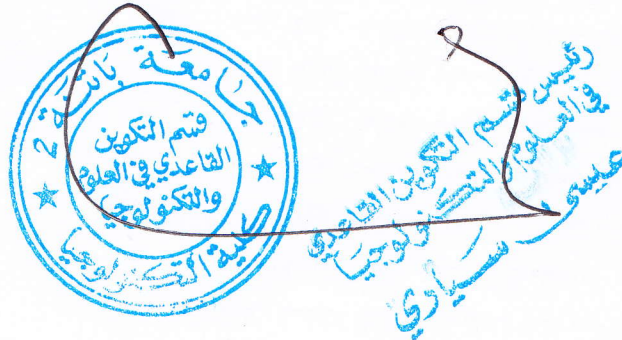 جامعة باتنة 2
قسم التكوين
القاعدي في العلوم
والتكنولوجيا
كلية التكنولوجيا
رئيس قسم التكوين القاعدي
في العلوم والتكنولوجيا
عيسى سياري